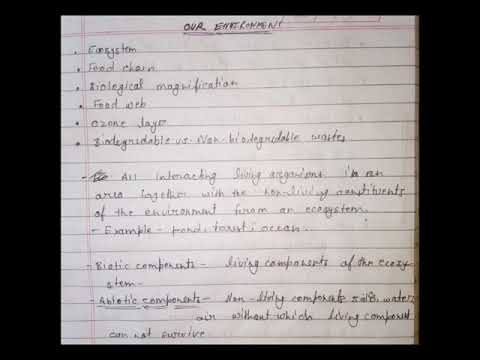 OUR ENVIRONMENT
• Ecosystem
• Food chain
• Biological magnification
• Food web
• Ozone layer
• Biodegradable vs. Non-biodegradable wastes
- All interacting living organisms in an
area together with the non-living constituents
of the environment form an ecosystem.
- Example - pond, forest, ocean.
- Biotic components - living components of the ecosy-
stem.
- Abiotic components - Non-living components soil, water,
air without which living component
can not survive.